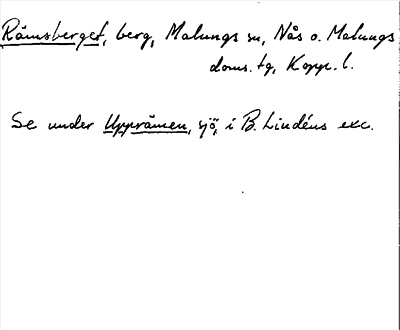 Råmsberget, berg, Malungs sn, Nås o. Malungs
doms. tg, Kopp. l.
Se under Uppråmen, sjö, i B. Lindéns exc.